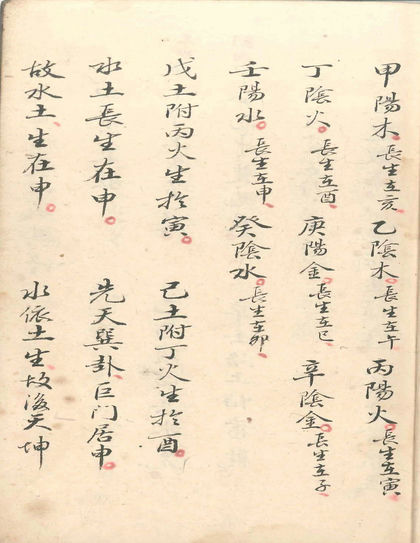 甲陽木。長生在亥。乙陰木。長生在午。丙陽火。長生在寅。
丁陰火。長生在酉。庚陽金。長生在巳。辛陰金。長生在子。
壬陽水。長生在申。癸陰水。長生在卯。
戊土附丙火生於寅。己土附丁火生於酉。
水土長生在申。先天巽卦、巨门居申。
故水土、生在申。水依土生、故後天坤